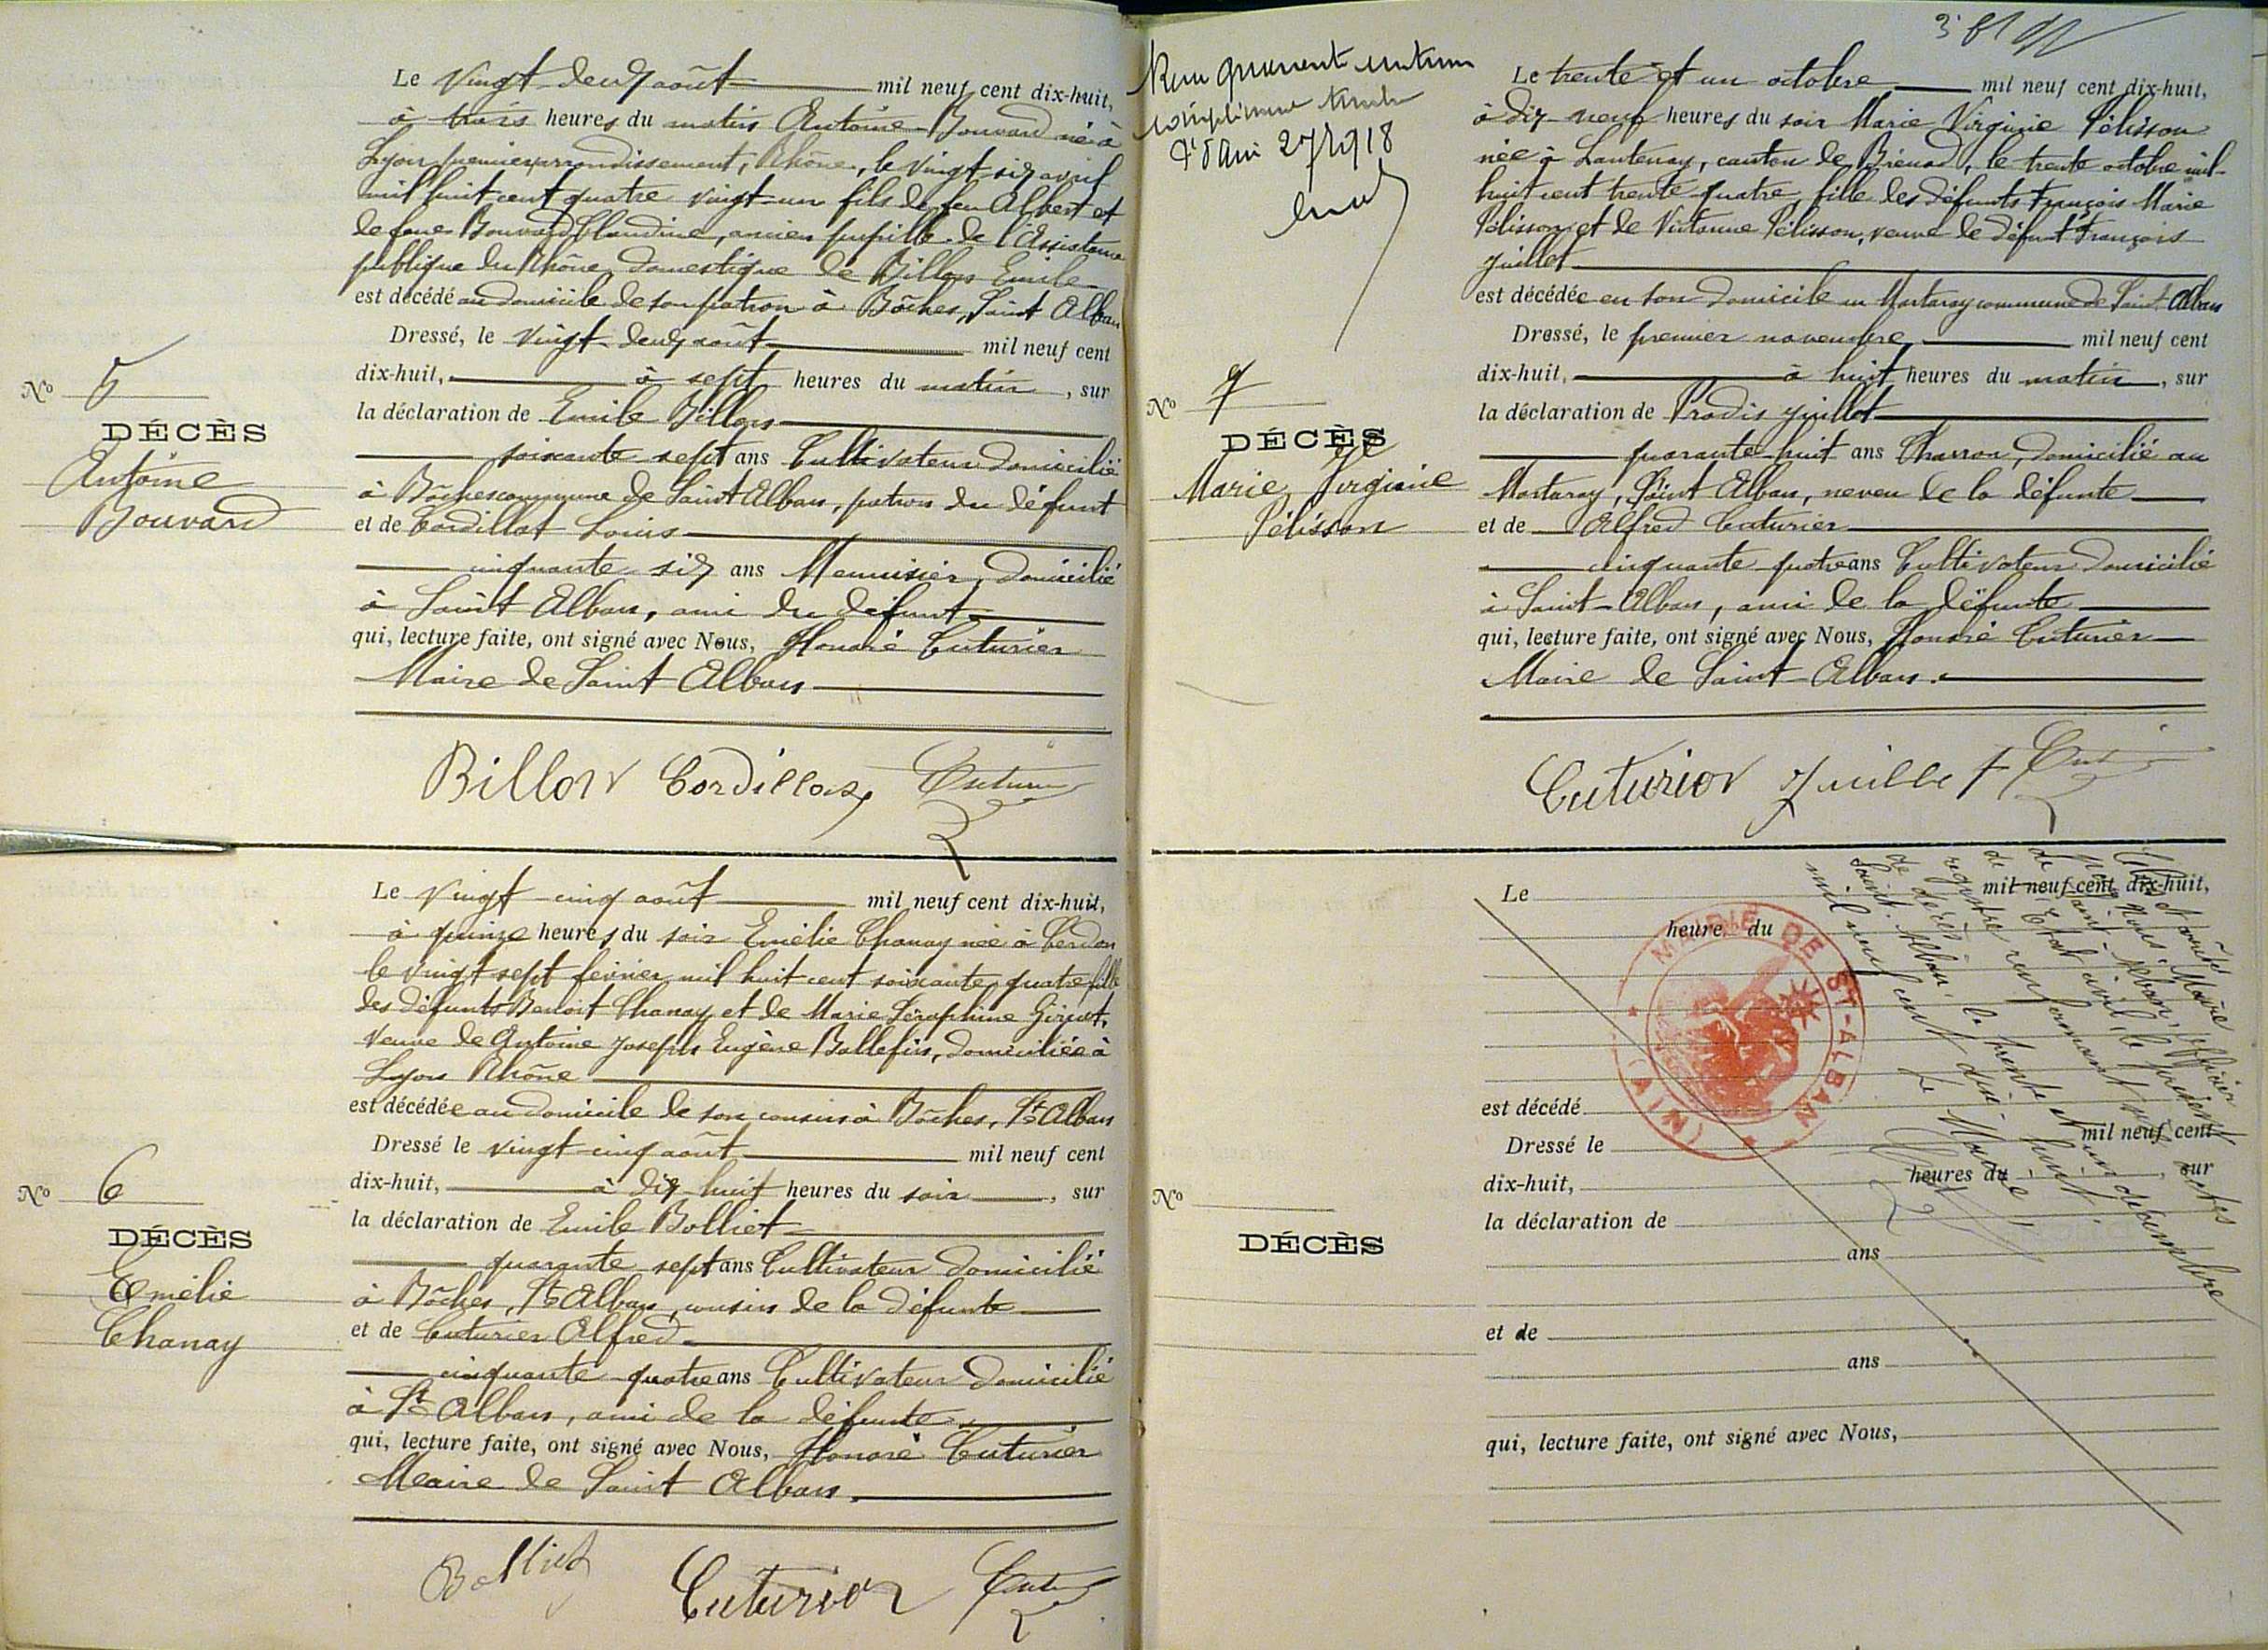 Le vingt-deux août mil neuf cent dix-huit,
à trois heures du matin Antoine Bouvard né à
Lyon premier arrondissement, Rhône, le vingt six avril
mil huit cent quatre vingt-un fils de feu Albert et
de feue Bouvard Claudine, ancien pupille de l'Assistance
publique du Rhône, domestique de Billon Emile
est décédé au domicile de son patron à Bôches, Saint Alban
Dressé, le vingt-deux août mil neuf cent
dix-huit, à sept heures du matin, sur
la déclaration de Emile Billon
soixante sept ans Cultivateur domicilié
à Bôches commune de Saint Alban, patron du défunt
et de Cordillot Louis
cinquante six ans Menuisier, domicilié
à Saint Alban, ami du défunt
qui, lecture faite, ont signé avec Nous, Honoré Cuturier
Maire de Saint Alban
Nº 5
DÉCÈS
Antoine
Bouvard
Billon Cordillot
Le vingt-cinq août mil neuf cent dix-huit,
à quinze heures du soir Emélie Chanay née à Cerdon
le vingt sept février mil huit cent soixante quatre fille
des défunts Benoit Chanay et de Marie Séraphine Girust,
veuve de Antoine Joseph Eugène Ballefin, domiciliée à
Lyon Rhône
est décédée au domicile de son cousin à Bôches, St Alban
Dressé le vingt-cinq août mil neuf cent
dix-huit, à dix-huit heures du soir, sur
la déclaration de Emile Bolliet
quarante sept ans Cultivateur domicilié
à Bôches, St Alban, cousin de la défunte
et de Cuturier Alfred
cinquante quatre ans Cultivateur domicilié
à St Alban, ami de la défunte
qui, lecture faite, ont signé avec Nous, Honoré Cuturier
Maire de Saint Alban.
Nº 6
DÉCÈS
Emélie
Chanay
Bolliet Cuturier
27 1918
Le trente et un octobre mil neuf cent dix-huit,
à dix-neuf heures du soir Marie Virginie Pélisson
née à Lantenay, canton de Brénod, le trente octobre mil
huit cent trente quatre, fille des défunts François Marie
Pélisson et de Victorine Pélisson, veuve de défunt François
Juillet
est décédée en son domicile au Mortaray commune de Saint Alban
Dressé, le premier novembre mil neuf cent
dix-huit, à huit heures du matin, sur
la déclaration de Prodis Juillet
quarante-huit ans Charron, domicilié au
Mortaray, Saint Alban, neveu de la défunte
et de Alfred Cuturier
cinquante quatre ans Cultivateur domicilié
à Saint-Alban, ami de la défunte
qui, lecture faite, ont signé avec Nous, Honoré Cuturier
Maire de Saint Alban.
Nº 7
DÉCÈS
Marie Virginie
Pélisson
Cuturier Juillet
Le mil neuf cent dix-huit,
heure du
est décédé
Dressé le mil neuf cent
dix-huit, heures du sur
la déclaration de
ans
et de
ans
qui, lecture faite, ont signé avec Nous,
Nº
DÉCÈS
MAIRIE DE ST-ALBAN (AIN)
Clos et arrêté
par Nous, Maire
de Saint-Alban, officier
de l'Etat civil, le présent
registre renfermant sept actes
de décès.
Saint-Alban, le trente et un décembre
mil neuf cent dix-huit.
Le Maire,